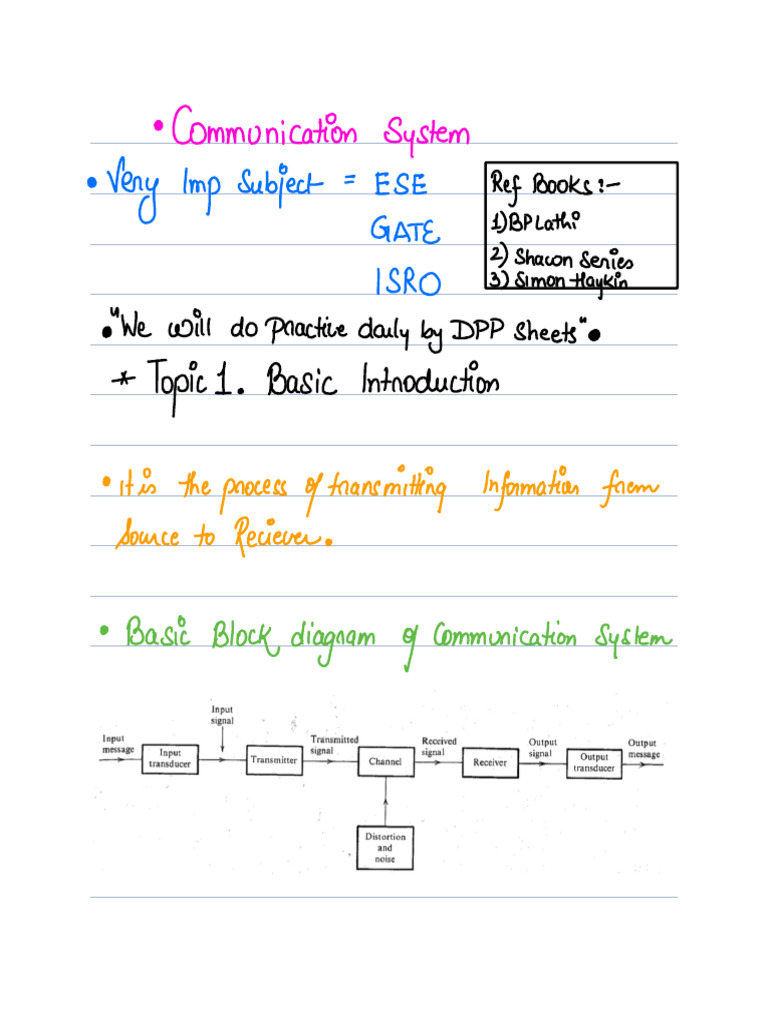 • Communication System
• Very Imp Subject = ESE
GATE
ISRO
Ref Books :-
1) BP Lathi
2) Shaon Series
3) Simon Haykin
• "We will do Practive daily by DPP Sheets" •
* Topic 1. Basic Introduction
• it is the process of transmitting Information from
Source to Reciever.
• Basic Block diagram of Communication System
Input message
Input transducer
Input signal
Transmitter
Transmitted signal
Channel
Received signal
Receiver
Output signal
Output transducer
Output message
Distortion and noise